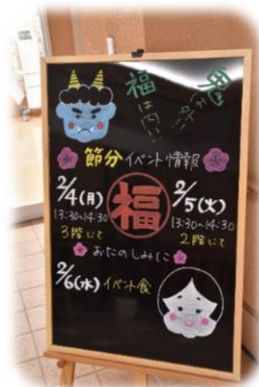 福は内!!
節分イベント情報
2/4(月)
13:30~14:30
3階にて
福
2/5(火)
13:30~14:30
2階にて
おたのしみに
2/6(水)イベント食